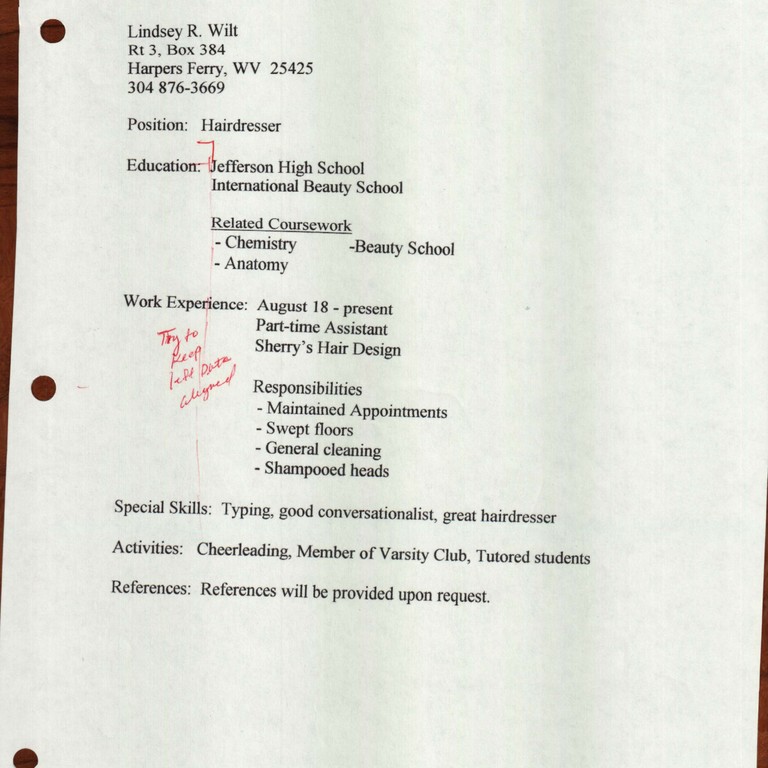 Lindsey R. Wilt
Rt 3, Box 384
Harpers Ferry, WV 25425
304 876-3669
Position: Hairdresser
Education: Jefferson High School
International Beauty School
Related Coursework
- Chemistry -Beauty School
- Anatomy
Work Experience: August 18 - present
Part-time Assistant
Sherry's Hair Design
Try to
keep
left Data
aligned
Responsibilities
- Maintained Appointments
- Swept floors
- General cleaning
- Shampooed heads
Special Skills: Typing, good conversationalist, great hairdresser
Activities: Cheerleading, Member of Varsity Club, Tutored students
References: References will be provided upon request.